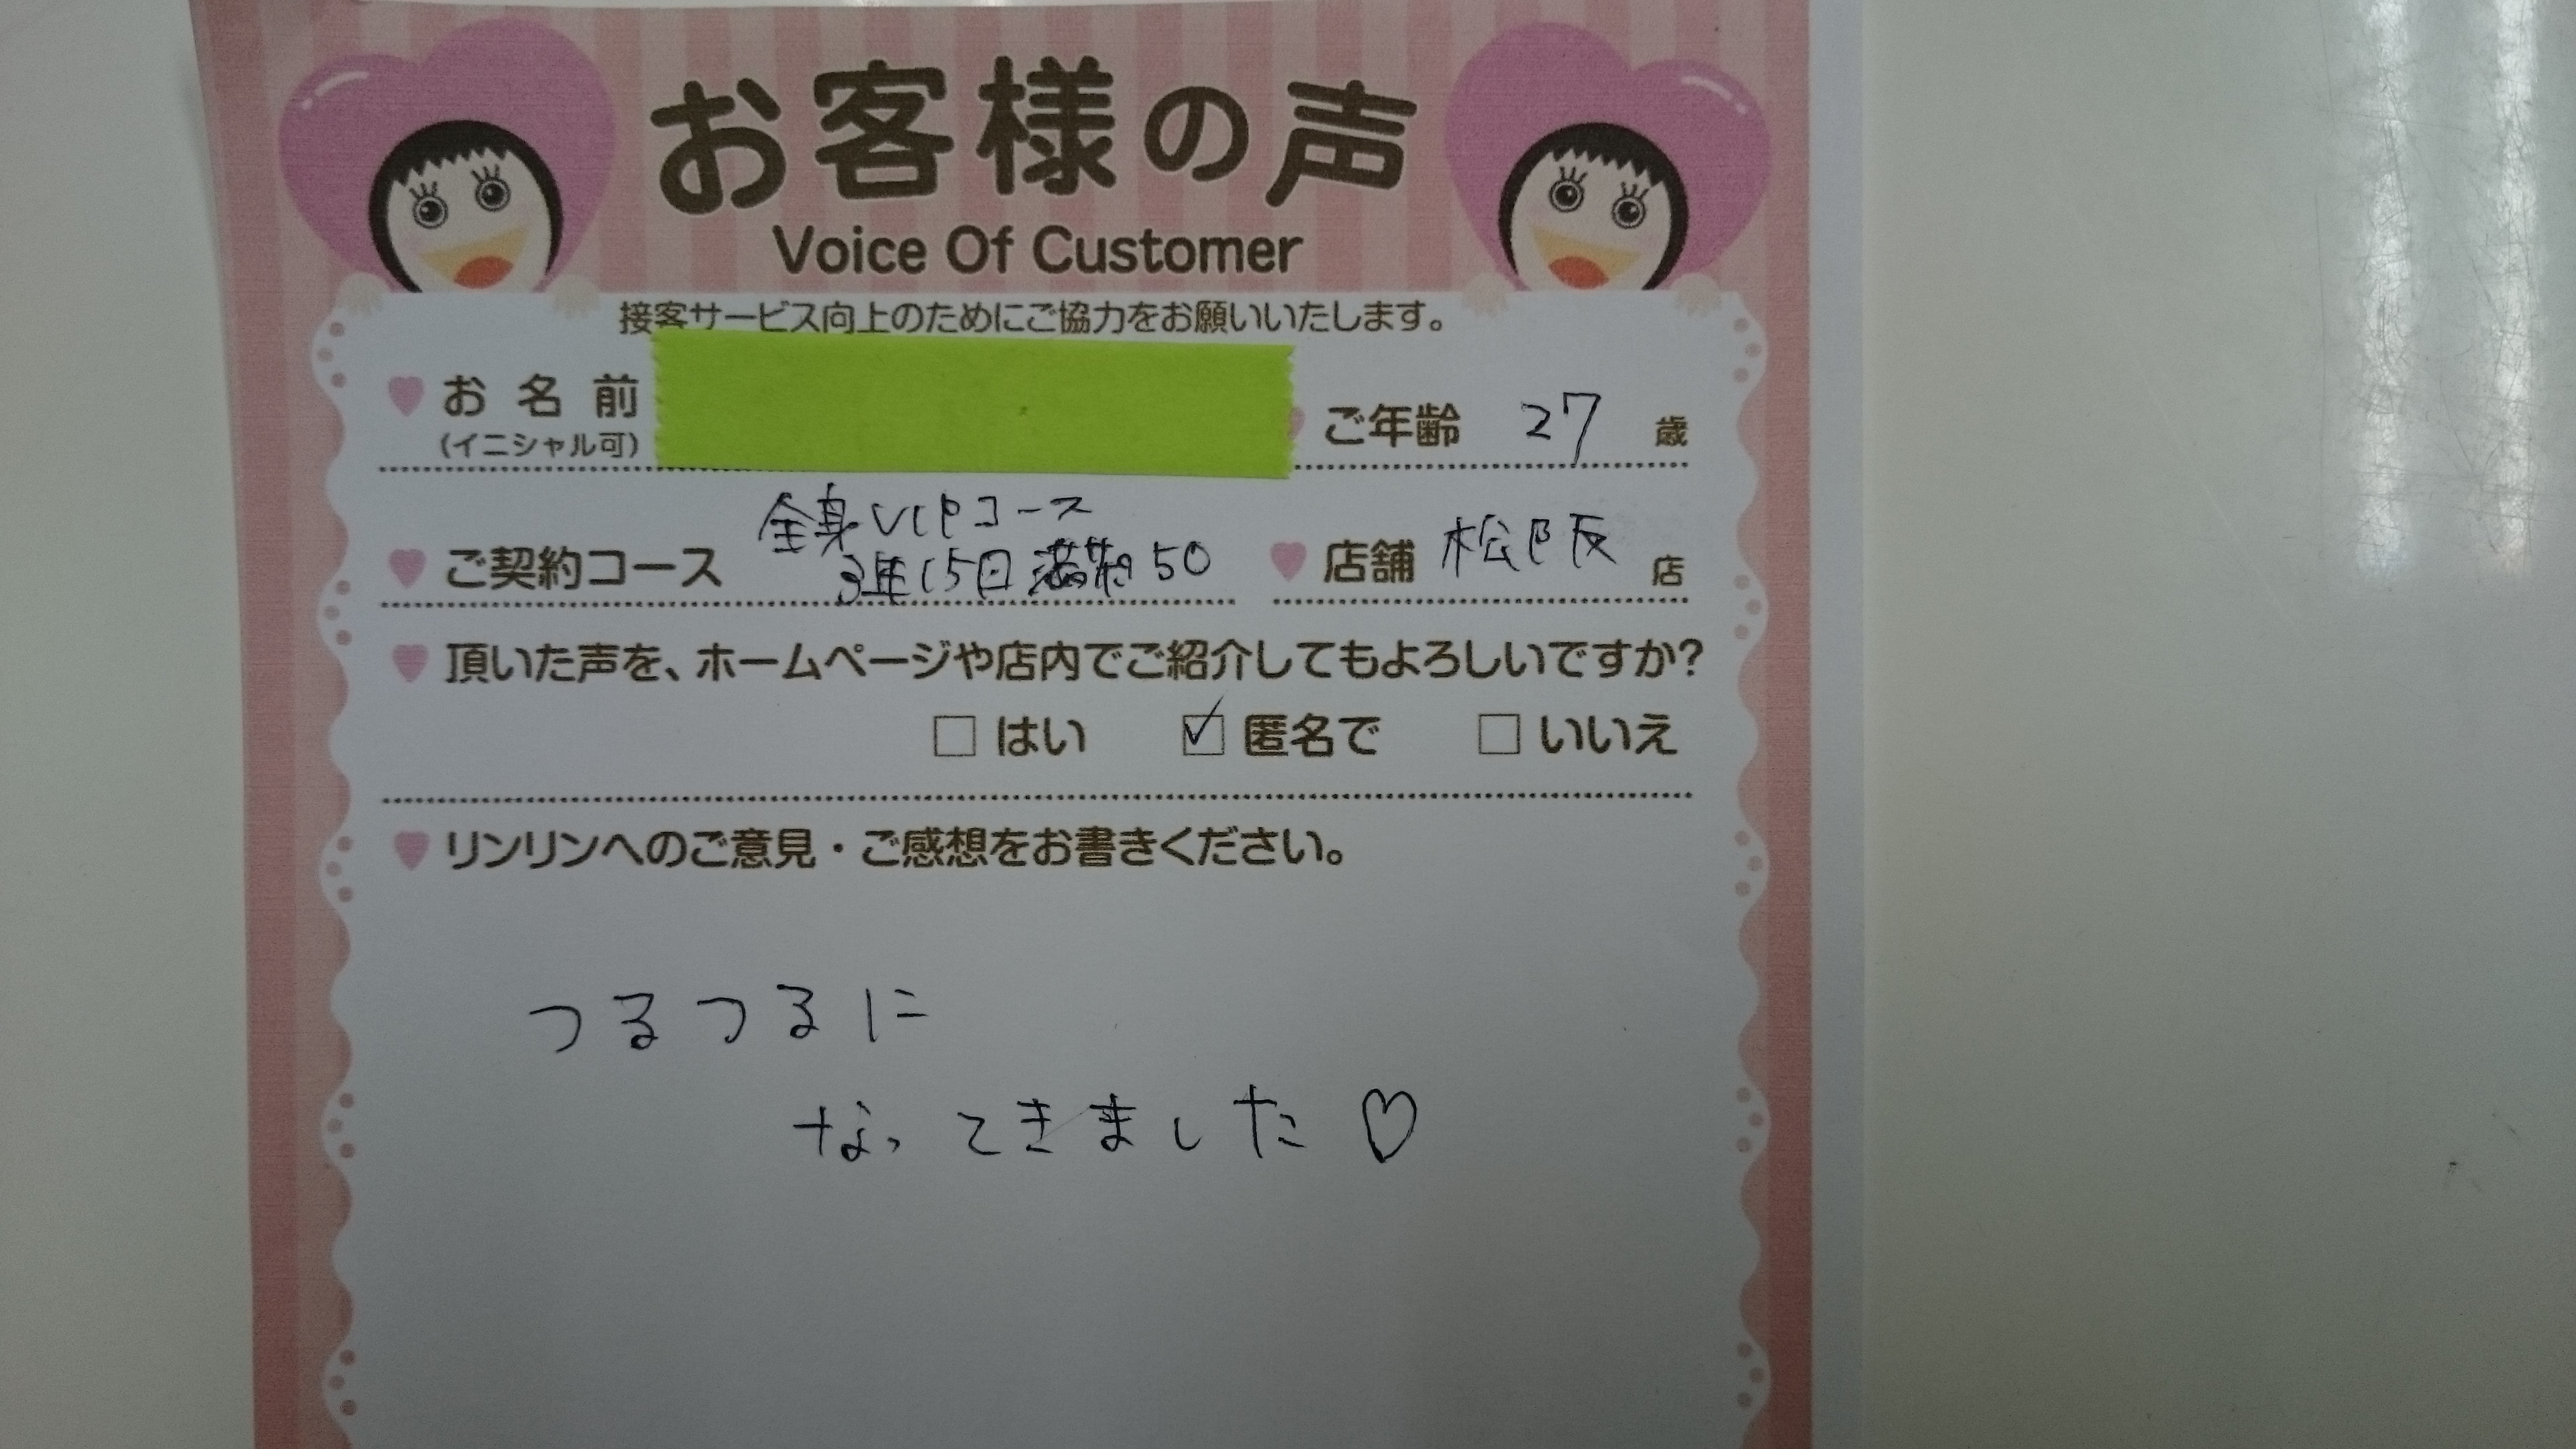 お客様の声
Voice Of Customer
接客サービス向上のためにご協力をお願いいたします。
お名前
(イニシャル可)
ご年齢 27 歳
全身VIPコース
ご契約コース 3年15日 満期50
店舗 松阪 店
頂いた声を、ホームページや店内でご紹介してもよろしいですか?
はい 匿名で いいえ
リンリンへのご意見・ご感想をお書きください。
つるつるに
なってきました♡